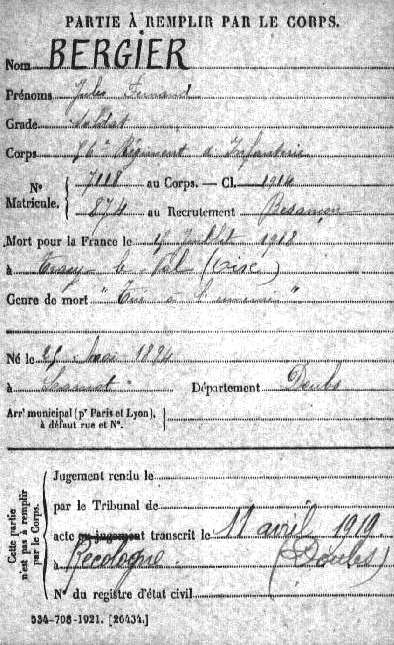 PARTIE À REMPLIR PAR LE CORPS.
Nom BERGIER
Prénoms Jules Fernand
Grade Soldat
Corps Régiment d'Infanterie
N° Matricule. 7118 au Corps. — Cl. 1914
874 au Recrutement Besançon
Mort pour la France le 17 Juillet 1918
à le Val (Oise)
Genre de mort " Tué à l'ennemi "
Né le 25 mai 1894
à Département Doubs
Arrt municipal (pr Paris et Lyon),
à défaut rue et N°.
Cette partie
n'est pas à remplir
par le Corps.
Jugement rendu le
par le Tribunal de
acte ou jugement transcrit le 11 avril 1919
à Recologne (Doubs)
N° du registre d'état civil
534-708-1921. [26434.]